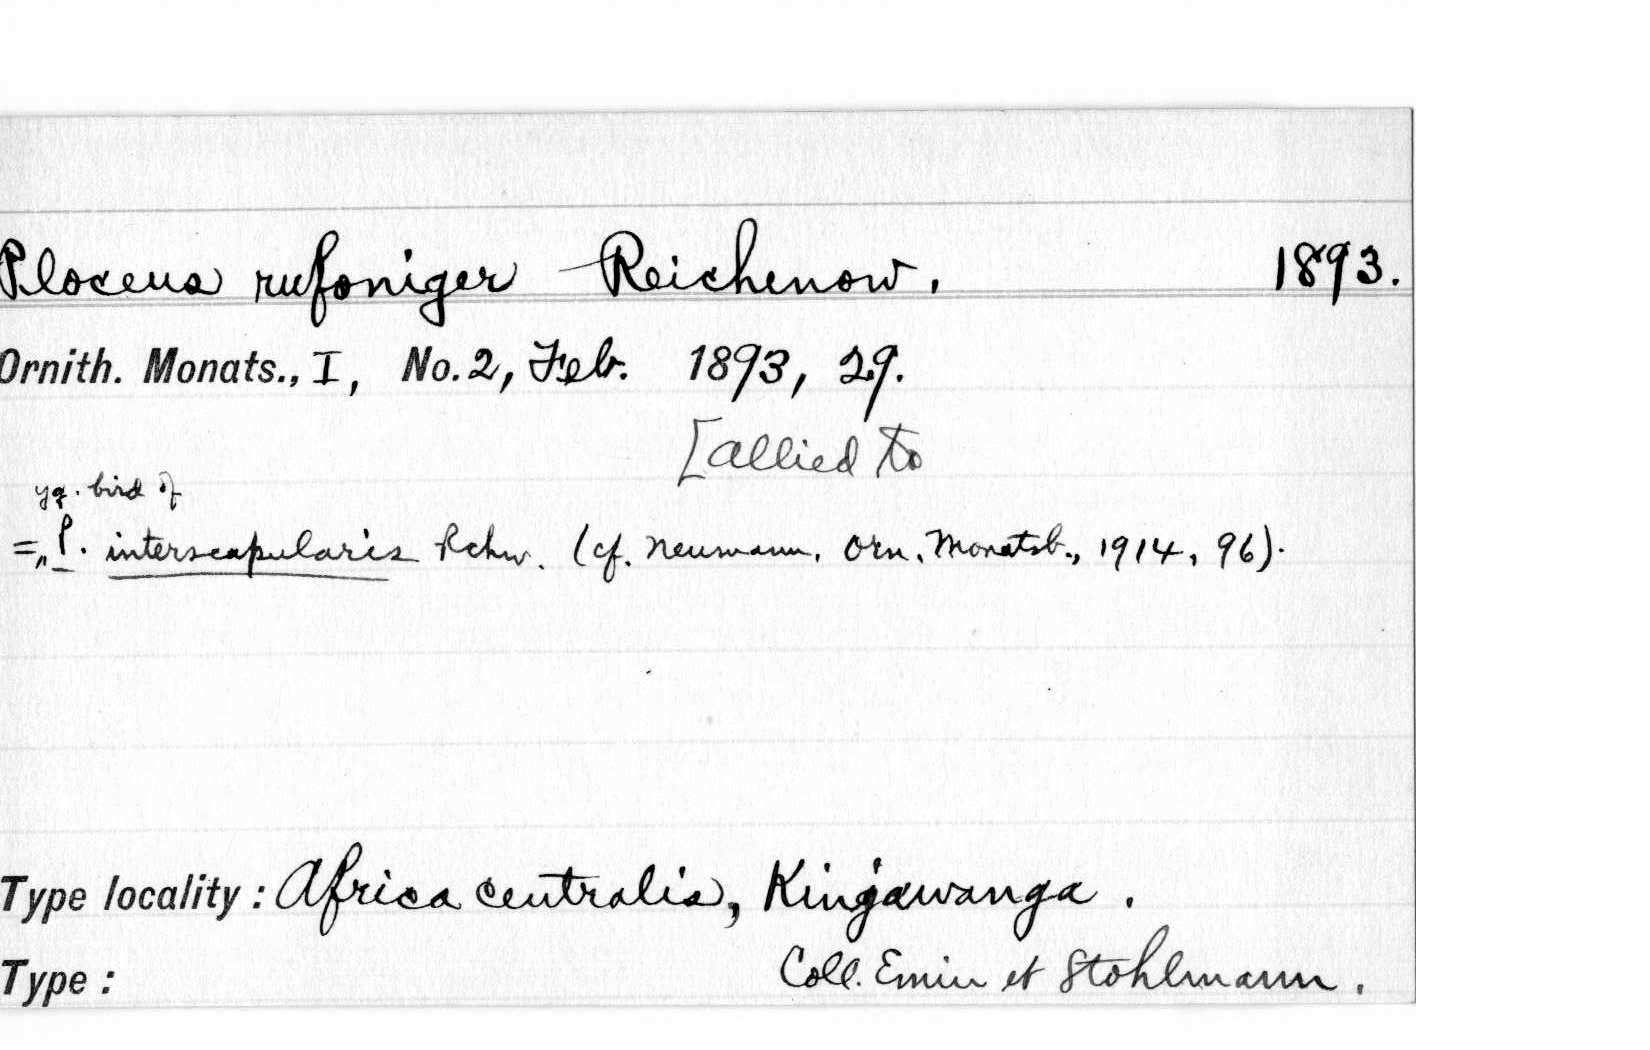 Ploceus rufoniger Reichenow. 1893.
Ornith. Monats., I, No. 2, Feb. 1893, 29.
[allied to
yg. bird of
= „ P. interscapularis Rchw. (cf. Neumann, Orn. Monatsb., 1914, 96).
Type locality: Africa centralis, Kinjawanga.
Type: Coll. Emin et Stohlmann.